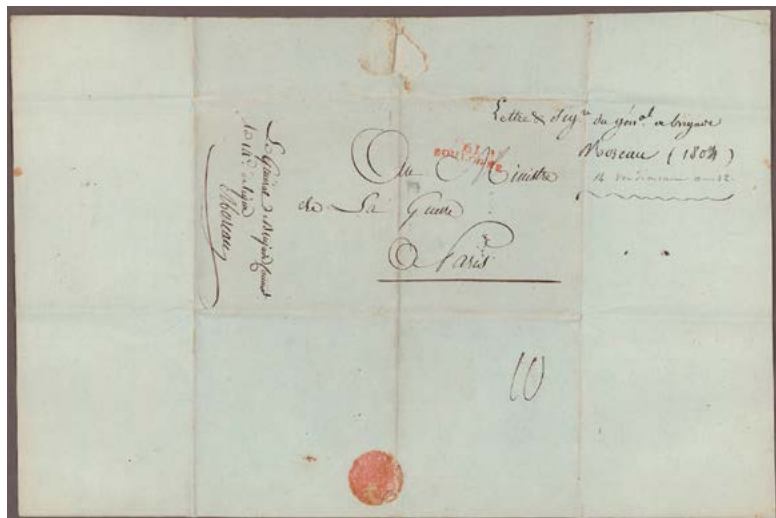 Lettre & Sig.re du génal. de brigade
Moreau (1804)
14 vendémiaire an 12
61
BOULOGNE
Au Ministre
de La Guerre
à Paris
10
Le Général de Brigade
de ligne
Moreau